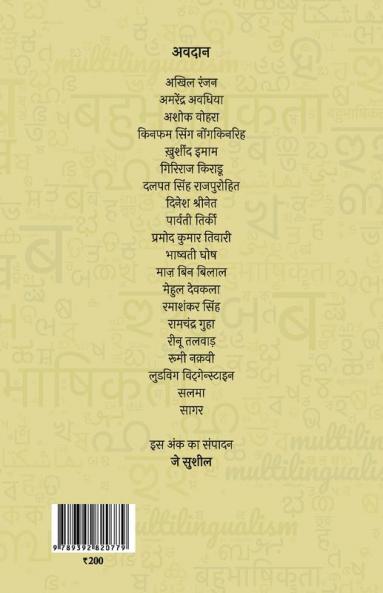 अवदान
अखिल रंजन
अमरेंद्र अवधिया
अशोक वोहरा
किनफम सिंग नोंगकिनरिह
ख़ुर्शीद इमाम
गिरिराज किराडू
दलपत सिंह राजपुरोहित
दिनेश श्रीनेत
पार्वती तिर्की
प्रमोद कुमार तिवारी
भाष्वती घोष
माज़ बिन बिलाल
मेहुल देवकला
रमाशंकर सिंह
रामचंद्र गुहा
रीनू तलवाड़
रूमी नक़वी
लुडविग विट्गेन्स्टाइन
सलमा
सागर
इस अंक का संपादन
जे सुशील
9789392820779
₹200